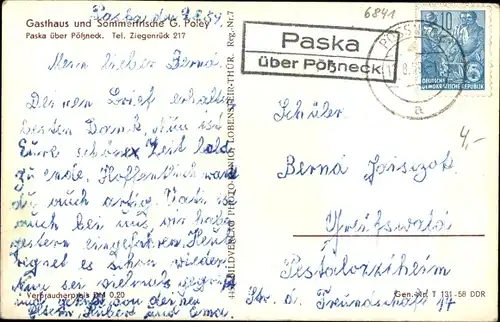 Gasthaus und Sommerfrische G. Poley
Paska über Pößneck. Tel. Ziegenrück 217
Paska, den
Mein lieber Bernd.
Deinen Brief erhalten
besten Dank, nun ist
Eure schöne Zeit bald
zu ende. Hoffentlich warst
du auch artig. Vati ist
auch bei uns, wir haben
gestern eingefahren. Heute
regnet es schon wieder.
Nun sei vielmals gegrüßt
und geküßt von deinen
Eltern, Hubert und
Verbraucherpreis DM 0,20
BILDVERLAG PHOTO-KÖNIG, LOBENSTEIN-THÜR. Reg. Nr. 7
6841
Paska
über Pößneck
PÖSSNECK
a
10
DEUTSCHE
DEMOKRATISCHE REPUBLIK
4,-
Schüler
Bernd
Greifswald
Pestalozziheim
Str. d. Freundschaft 17
Gen.-Nr. T 131-58 DDR